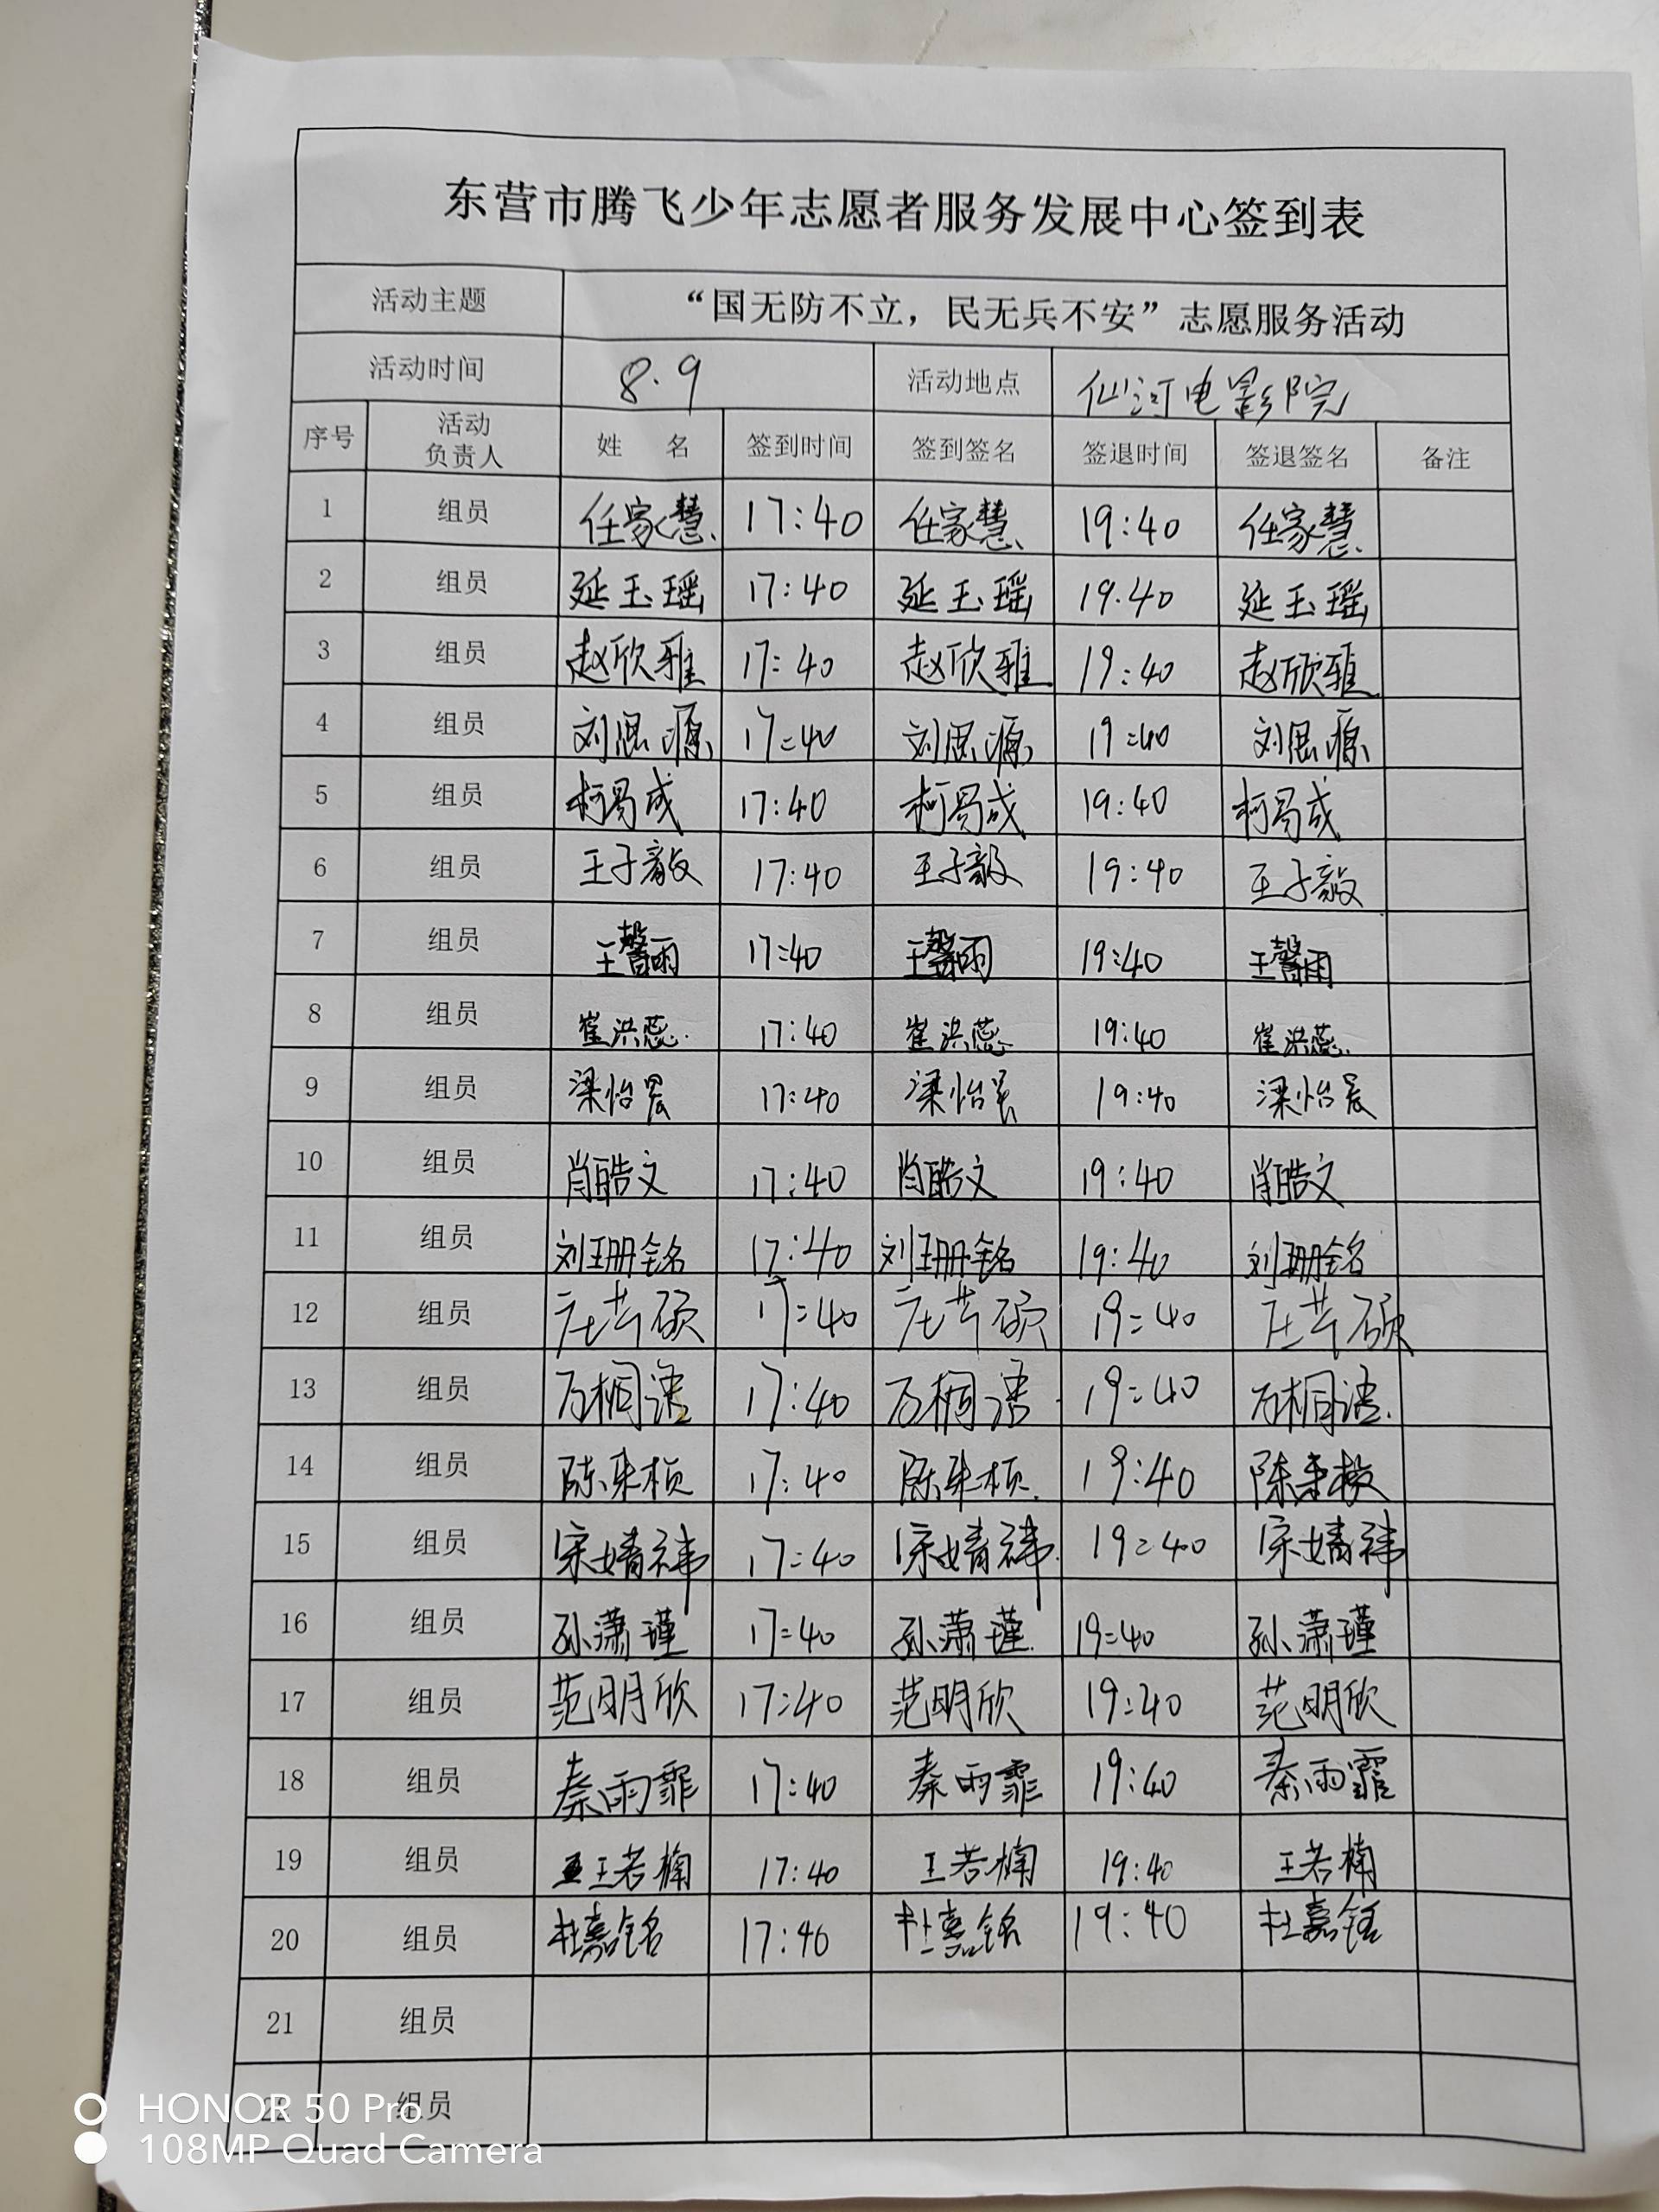 东营市腾飞少年志愿者服务发展中心签到表
活动主题 “国无防不立，民无兵不安”志愿服务活动
活动时间 8.9 活动地点 仙河电影院
序号 活动负责人 姓 名 签到时间 签到签名 签退时间 签退签名 备注
1 组员 任家慧 17:40 任家慧 19:40 任家慧
2 组员 延玉瑶 17:40 延玉瑶 19.40 延玉瑶
3 组员 赵欣雅 17:40 赵欣雅 19:40 赵欣雅
4 组员 刘思源 17:40 刘思源 19:40 刘思源
5 组员 柯易成 17:40 柯易成 19:40 柯易成
6 组员 王子毅 17:40 王子毅 19:40 王子毅
7 组员 王馨雨 17:40 王馨雨 19:40 王馨雨
8 组员 崔洪蕊 17:40 崔洪蕊 19:40 崔洪蕊
9 组员 梁怡晨 17:40 梁怡晨 19:40 梁怡晨
10 组员 肖皓文 17:40 肖皓文 19:40 肖皓文
11 组员 刘珊铭 17:40 刘珊铭 19:40 刘珊铭
12 组员 17:40 19:40
13 组员 17:40 19:40
14 组员 17:40 19:40
15 组员 宋婧祎 17:40 宋婧祎 19:40 宋婧祎
16 组员 孙潇瑾 17:40 孙潇瑾 19:40 孙潇瑾
17 组员 范明欣 17:40 范明欣 19:40 范明欣
18 组员 秦雨霏 17:40 秦雨霏 19:40 秦雨霏
19 组员 王若楠 17:40 王若楠 19:40 王若楠
20 组员 杜嘉铭 17:40 杜嘉铭 19:40 杜嘉铭
21 组员
22 组员
HONOR 50 Pro
108MP Quad Camera